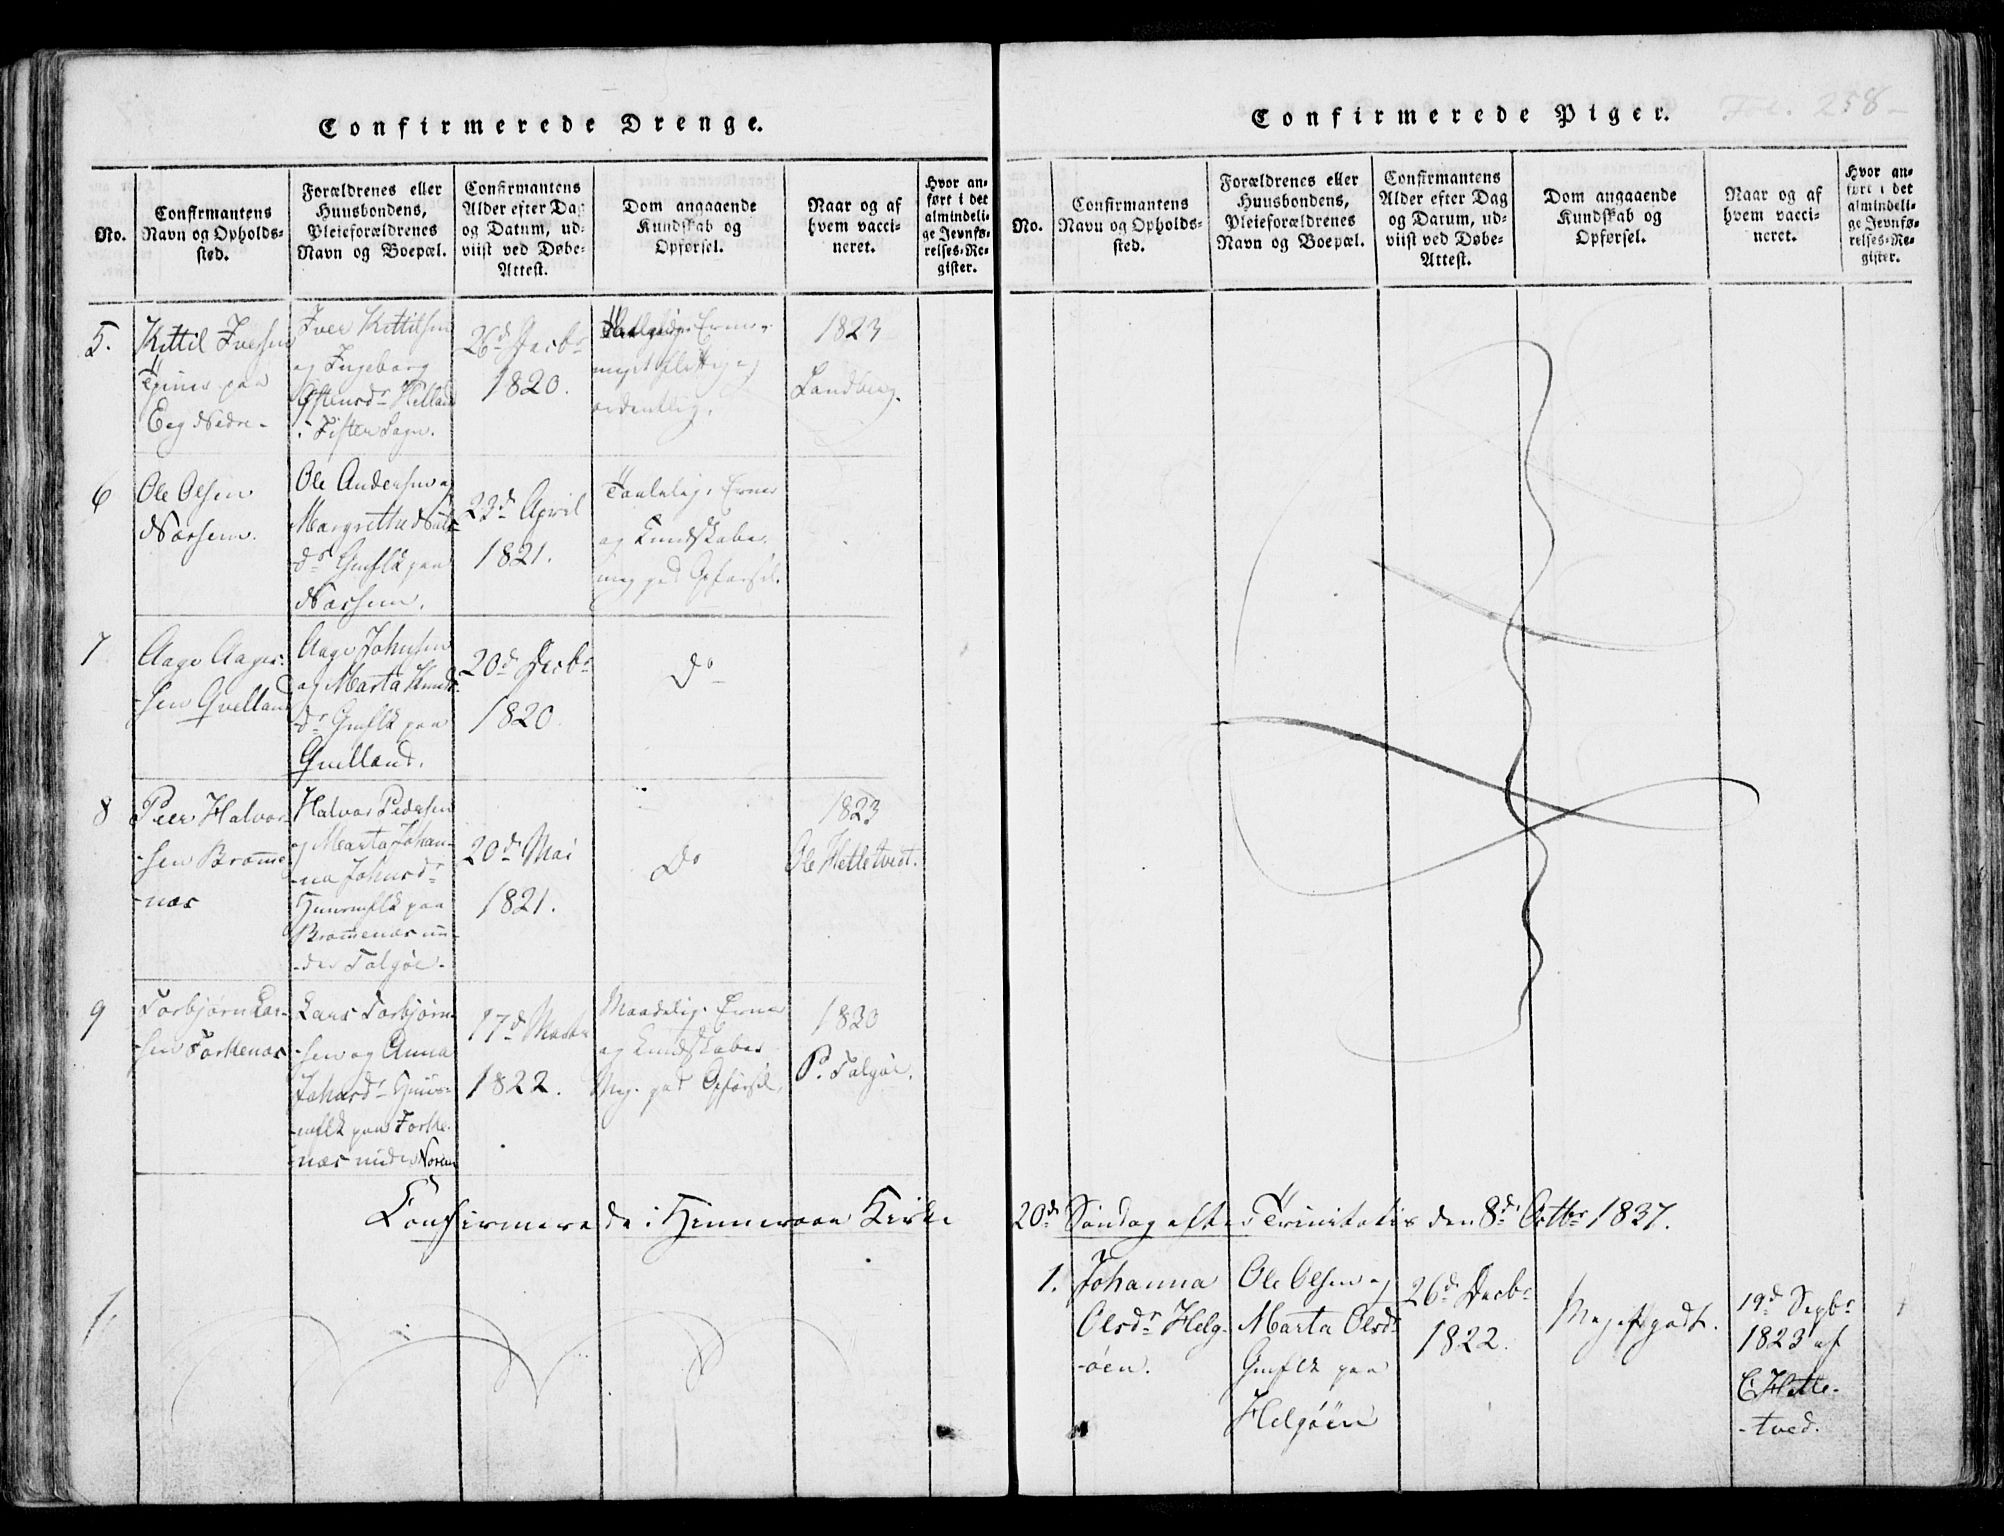 Confirmerede Drenge.
No.
Confirmantens
Navn og Opholds-
sted.
Forældrenes eller
Huusbondens,
Pleieforældrenes
Navn og Boepæl.
Confirmantens
Alder efter Dag
og Datum, ud-
viist ved Døbe-
Attest.
Dom angaaende
Kundskab og
Opførsel.
Naar og af
hvem vacci-
neret.
Hvor an-
ført i det
almindeli-
ge Jevnfø-
relses-Re-
gister.
5.
Kittil Iversen
Tjener paa
Eeg Nedre-
Iver Kittilsen
og Ingeborg
Ostensdr Helland
i Fister Sogn.
26d Decbr
1820.
meget flittig og
ordentlig.
1823
Landberg.
6
Ole Olsen
Nærsem.
Ole Andersen og
Margrethe
dr Gmflk paa
Nærsem.
23d April
1821.
Taalelig Evner
og Kundskaber
meg. god Opførsel.
7
Aage Aages-
sen Qvelland
Aage Johnsen
og Marta Knuds-
dr Gmflk paa
Qvelland.
20d Decbr
1820.
Do
8
Peer Halvor-
sen Brømme-
næs
Halvor Pedersen
og Marta Johan-
na Johnsdr
Huusmflk paa
Brømenæs un-
der Talgøe.
20d Mai
1821.
Do
1823
Ole Hetletvedt.
9
Torbjørn Lar-
sen Forkenæs
Lars Torbjørn-
sen og Anna
Johnsdr Huus-
mflk paa Forke-
næs under
17d Marts
1822.
Maadelig. Evner
og Kundskaber
Meg. god Opførsel.
1823
P. Talgøe.
Confirmerede i Hinneraae Kirke
1.
Confirmerede Piger.
Fol. 258-
No.
Confirmantens
Navn og Opholds-
sted.
Forældrenes eller
Huusbondens,
Pleieforældrenes
Navn og Boepæl.
Confirmantens
Alder efter Dag
og Datum, ud-
viist ved Døbe-
Attest.
Dom angaaende
Kundskab og
Opførsel.
Naar og af
hvem vacci-
neret.
Hvor an-
ført i det
almindeli-
ge Jevnfø-
relses-Re-
gister.
20d Søndag efter Trinitatis den 8d Octbr 1837.
1.
Johanna
Olsdr Helg-
øen.
Ole Olsen og
Marta Olsdr
Gmflk paa
Helgøen
26d Decbr
1822.
Meget godt.
19d Sepbr
1823 af
Hette-
tved.